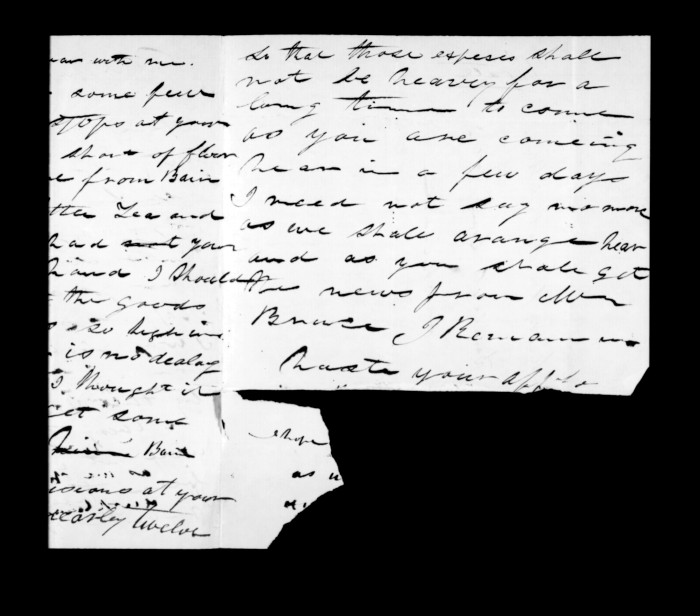 with me.
some few
stops at your
short of flour
from Bain
Tea and
had not your
hand I should
the goods
so high in
is no dealing
I thought it
get some
Bain
at your
twelve
so that those expeses shall
not be heavey for a
long time to come
as you are comeing
hear in a few days
I need not say no more
as we shall arange hear
and as you shall get
the news from Mr
Bruce I Remain in
haste your affto
hope
as